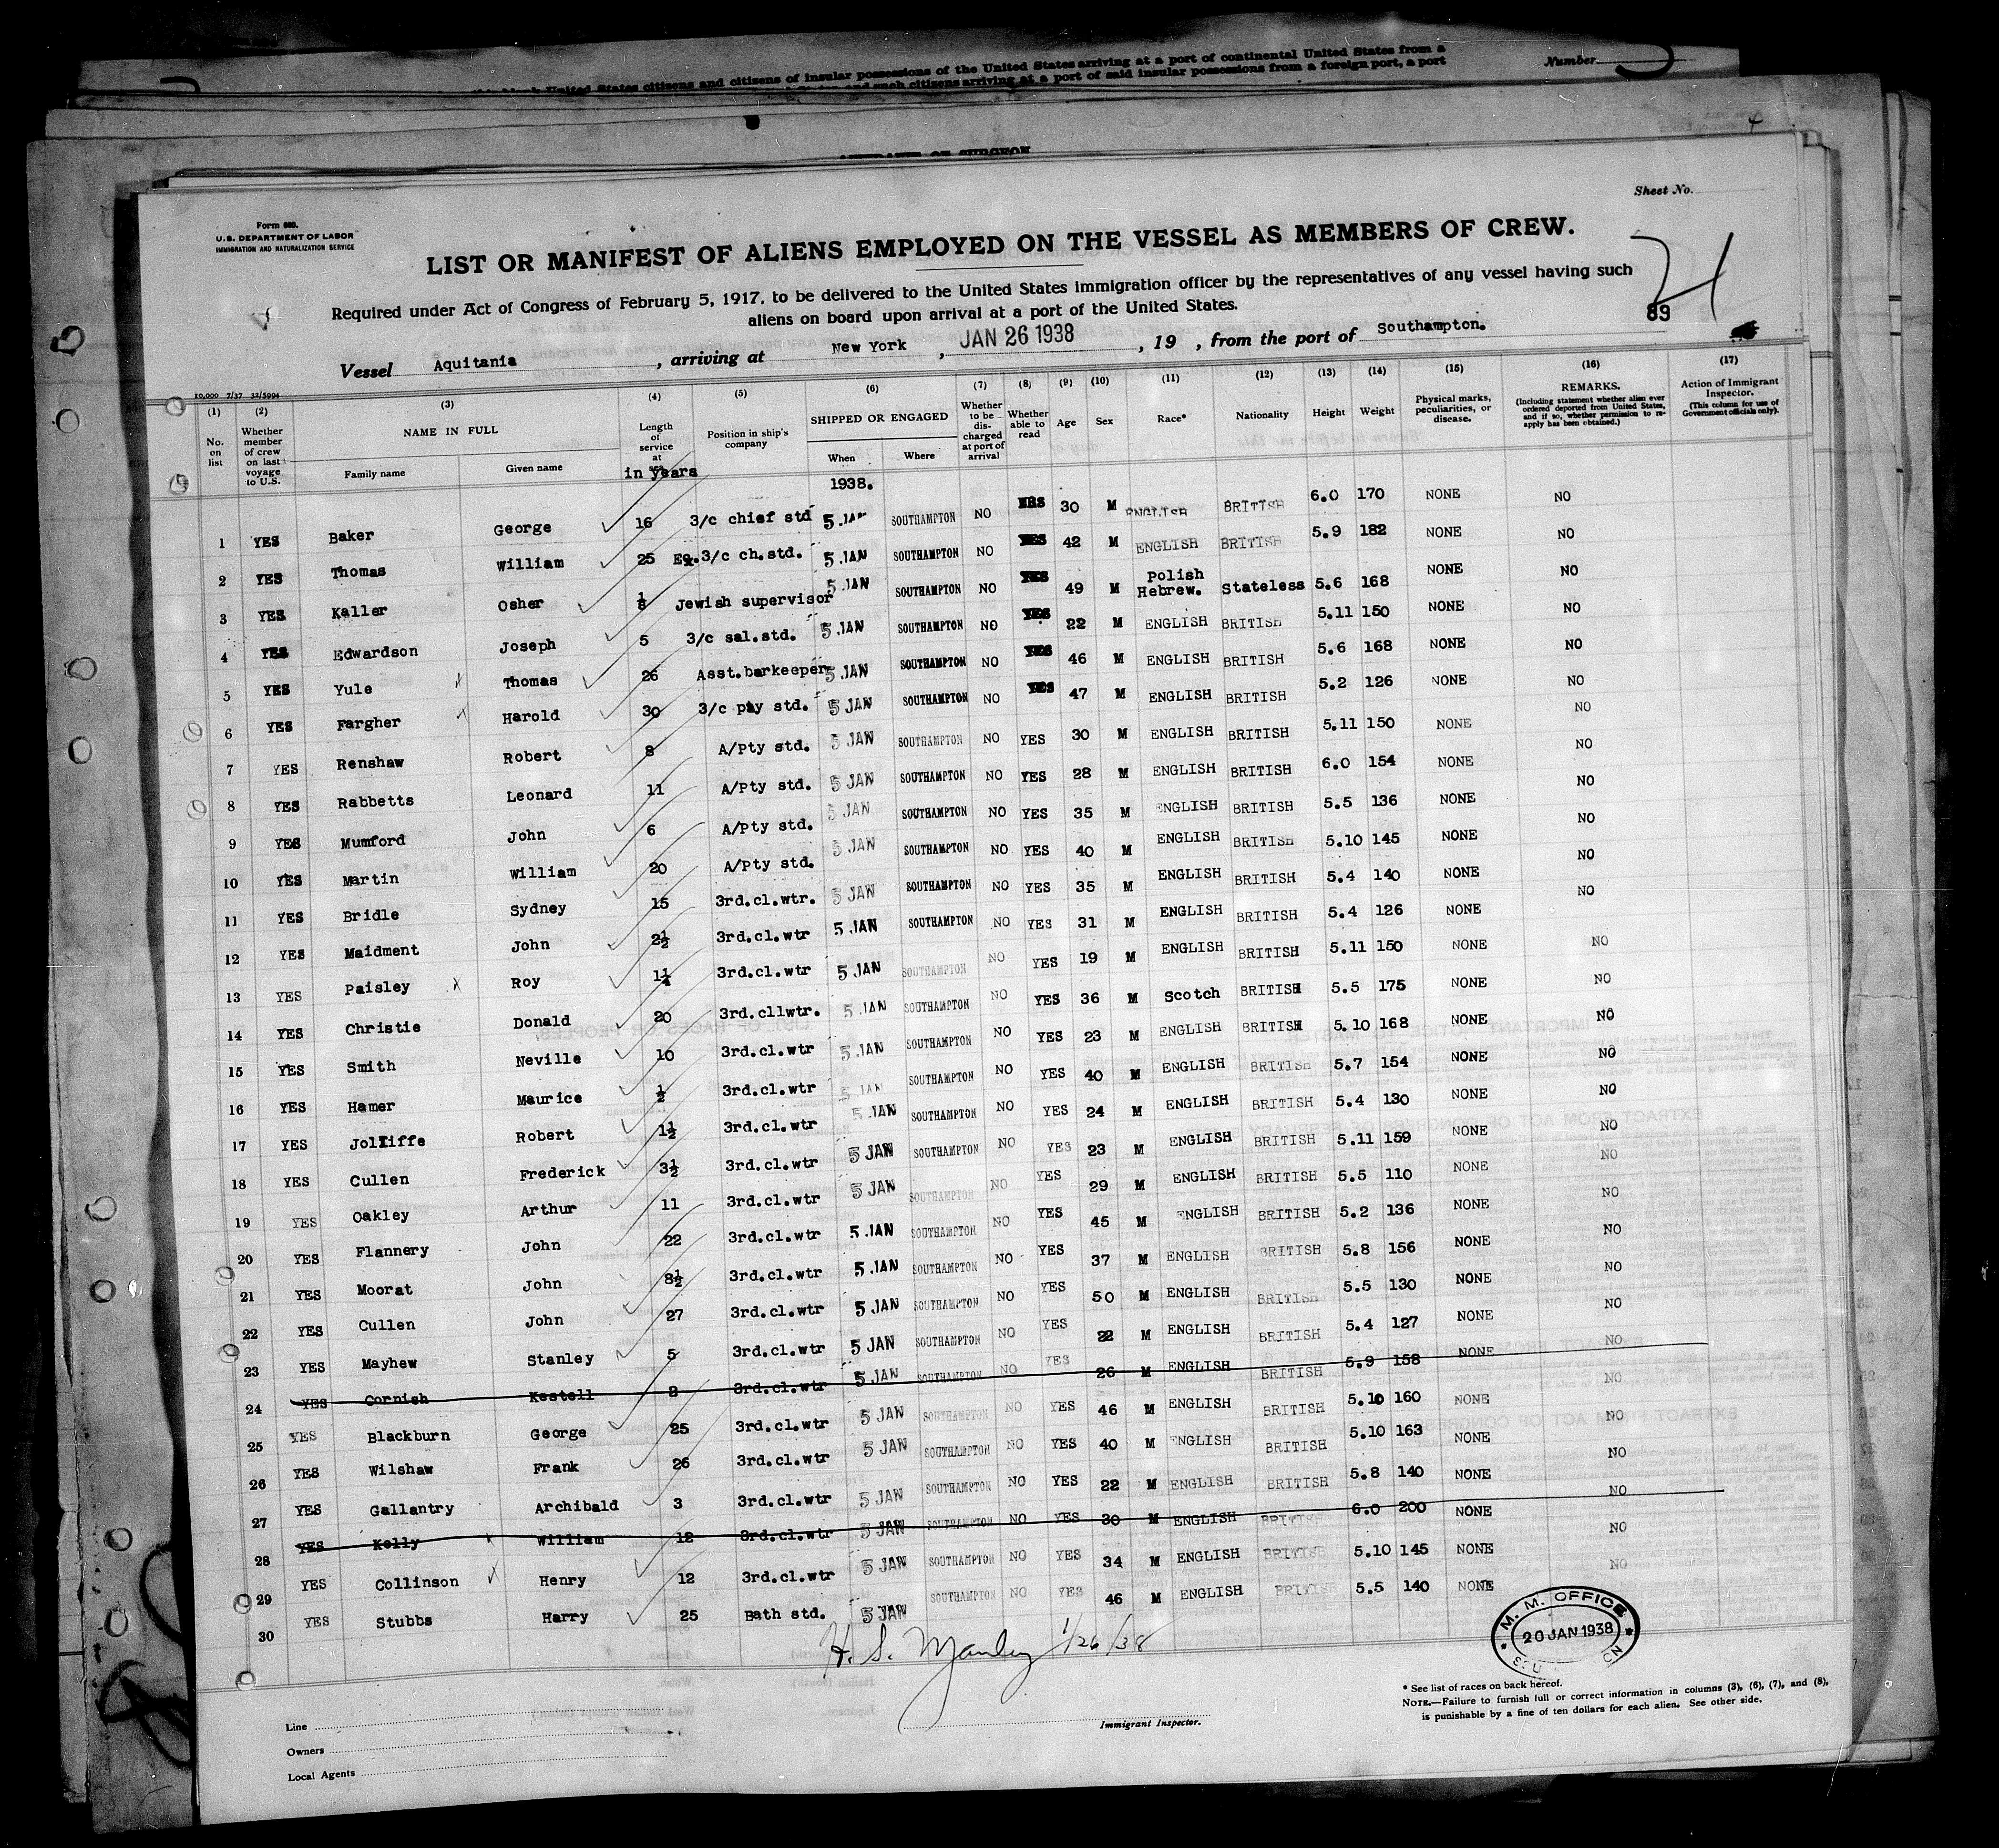 United States citizens and citizens of insular possessions of the United States arriving at a port of continental United States from a
such citizens arriving at a port of said insular possessions from a foreign port, a port
Number
Sheet No.
Form 680.
U.S. DEPARTMENT OF LABOR
IMMIGRATION AND NATURALIZATION SERVICE
LIST OR MANIFEST OF ALIENS EMPLOYED ON THE VESSEL AS MEMBERS OF CREW.
Required under Act of Congress of February 5, 1917, to be delivered to the United States immigration officer by the representatives of any vessel having such
aliens on board upon arrival at a port of the United States.
89
Vessel Aquitania, arriving at New York, JAN 26 1938, 19 , from the port of Southampton.
10,000 7/37 32/5994
(1) (2) (3) (4) (5) (6) (7) (8) (9) (10) (11) (12) (13) (14) (15) (16) (17)
No. on list Whether member of crew on last voyage to U.S. NAME IN FULL Family name Given name Length of service at in years Position in ship's company SHIPPED OR ENGAGED When Where Whether to be discharged at port of arrival Whether able to read Age Sex Race* Nationality Height Weight Physical marks, peculiarities, or disease. REMARKS. (Including statement whether alien ever ordered deported from United States, and if so, whether permission to reapply has been obtained.) Action of Immigrant Inspector. (This column for use of Government officials only).
1938.
1 YES Baker George 16 3/c chief std 5 JAN SOUTHAMPTON NO YES 30 M ENGLISH BRITISH 6.0 170 NONE NO
2 YES Thomas William 25 Eq.3/c ch.std. 5 JAN SOUTHAMPTON NO YES 42 M ENGLISH BRITISH 5.9 182 NONE NO
3 YES Kaller Osher 1/8 Jewish supervisor 5 JAN SOUTHAMPTON NO YES 49 M Polish Hebrew. Stateless 5.6 168 NONE NO
4 YES Edwardson Joseph 5 3/c sal.std. 5 JAN SOUTHAMPTON NO YES 22 M ENGLISH BRITISH 5.11 150 NONE NO
5 YES Yule Thomas 26 Asst.barkeeper 5 JAN SOUTHAMPTON NO YES 46 M ENGLISH BRITISH 5.6 168 NONE NO
6 YES Fargher Harold 30 3/c pay std. 5 JAN SOUTHAMPTON NO YES 47 M ENGLISH BRITISH 5.2 126 NONE NO
7 YES Renshaw Robert 8 A/Pty std. 5 JAN SOUTHAMPTON NO YES 30 M ENGLISH BRITISH 5.11 150 NONE NO
8 YES Rabbetts Leonard 11 A/Pty std. 5 JAN SOUTHAMPTON NO YES 28 M ENGLISH BRITISH 6.0 154 NONE NO
9 YES Mumford John 6 A/Pty std. 5 JAN SOUTHAMPTON NO YES 35 M ENGLISH BRITISH 5.5 136 NONE NO
10 YES Martin William 20 A/Pty std. 5 JAN SOUTHAMPTON NO YES 40 M ENGLISH BRITISH 5.10 145 NONE NO
11 YES Bridle Sydney 15 3rd.cl.wtr. 5 JAN SOUTHAMPTON NO YES 35 M ENGLISH BRITISH 5.4 140 NONE NO
12 YES Maidment John 2½ 3rd.cl.wtr 5 JAN SOUTHAMPTON NO YES 31 M ENGLISH BRITISH 5.4 126 NONE NO
13 YES Paisley Roy 1¼ 3rd.cl.wtr 5 JAN SOUTHAMPTON NO YES 19 M ENGLISH BRITISH 5.11 150 NONE NO
14 YES Christie Donald 20 3rd.cllwtr. 5 JAN SOUTHAMPTON NO YES 36 M Scotch BRITISH 5.5 175 NONE NO
15 YES Smith Neville 10 3rd.cl.wtr 5 JAN SOUTHAMPTON NO YES 23 M ENGLISH BRITISH 5.10 168 NONE NO
16 YES Hamer Maurice ½ 3rd.cl.wtr 5 JAN SOUTHAMPTON NO YES 40 M ENGLISH BRITISH 5.7 154 NONE NO
17 YES Jolliffe Robert 1½ 3rd.cl.wtr 5 JAN SOUTHAMPTON NO YES 24 M ENGLISH BRITISH 5.4 130 NONE NO
18 YES Cullen Frederick 3½ 3rd.cl.wtr 5 JAN SOUTHAMPTON NO YES 23 M ENGLISH BRITISH 5.11 159 NONE NO
19 YES Oakley Arthur 11 3rd.cl.wtr 5 JAN SOUTHAMPTON NO YES 29 M ENGLISH BRITISH 5.5 110 NONE NO
20 YES Flannery John 22 3rd.cl.wtr 5 JAN SOUTHAMPTON NO YES 45 M ENGLISH BRITISH 5.2 136 NONE NO
21 YES Moorat John 8½ 3rd.cl.wtr 5 JAN SOUTHAMPTON NO YES 37 M ENGLISH BRITISH 5.8 156 NONE NO
22 YES Cullen John 27 3rd.cl.wtr 5 JAN SOUTHAMPTON NO YES 50 M ENGLISH BRITISH 5.5 130 NONE NO
23 YES Mayhew Stanley 5 3rd.cl.wtr 5 JAN SOUTHAMPTON NO YES 22 M ENGLISH BRITISH 5.4 127 NONE NO
24 YES Cornish Kestell 2 3rd.cl.wtr 5 JAN SOUTHAMPTON NO YES 26 M ENGLISH BRITISH 5.9 158 NONE NO
25 YES Blackburn George 25 3rd.cl.wtr 5 JAN SOUTHAMPTON NO YES 46 M ENGLISH BRITISH 5.10 160 NONE NO
26 YES Wilshaw Frank 26 3rd.cl.wtr 5 JAN SOUTHAMPTON NO YES 40 M ENGLISH BRITISH 5.10 163 NONE NO
27 YES Gallantry Archibald 3 3rd.cl.wtr 5 JAN SOUTHAMPTON NO YES 22 M ENGLISH BRITISH 5.8 140 NONE NO
28 YES Kelly William 12 3rd.cl.wtr 5 JAN SOUTHAMPTON NO YES 30 M ENGLISH BRITISH 6.0 200 NONE NO
29 YES Collinson Henry 12 3rd.cl.wtr 5 JAN SOUTHAMPTON NO YES 34 M ENGLISH BRITISH 5.10 145 NONE NO
30 YES Stubbs Harry 25 Bath std. 5 JAN SOUTHAMPTON NO YES 46 M ENGLISH BRITISH 5.5 140 NONE NO
H. S. Manley 1/26/38
M. M. OFFICE
20 JAN 1938
Line
Owners
Local Agents
Immigrant Inspector.
* See list of races on back hereof.
NOTE.—Failure to furnish full or correct information in columns (3), (6), (7), and (8),
is punishable by a fine of ten dollars for each alien. See other side.